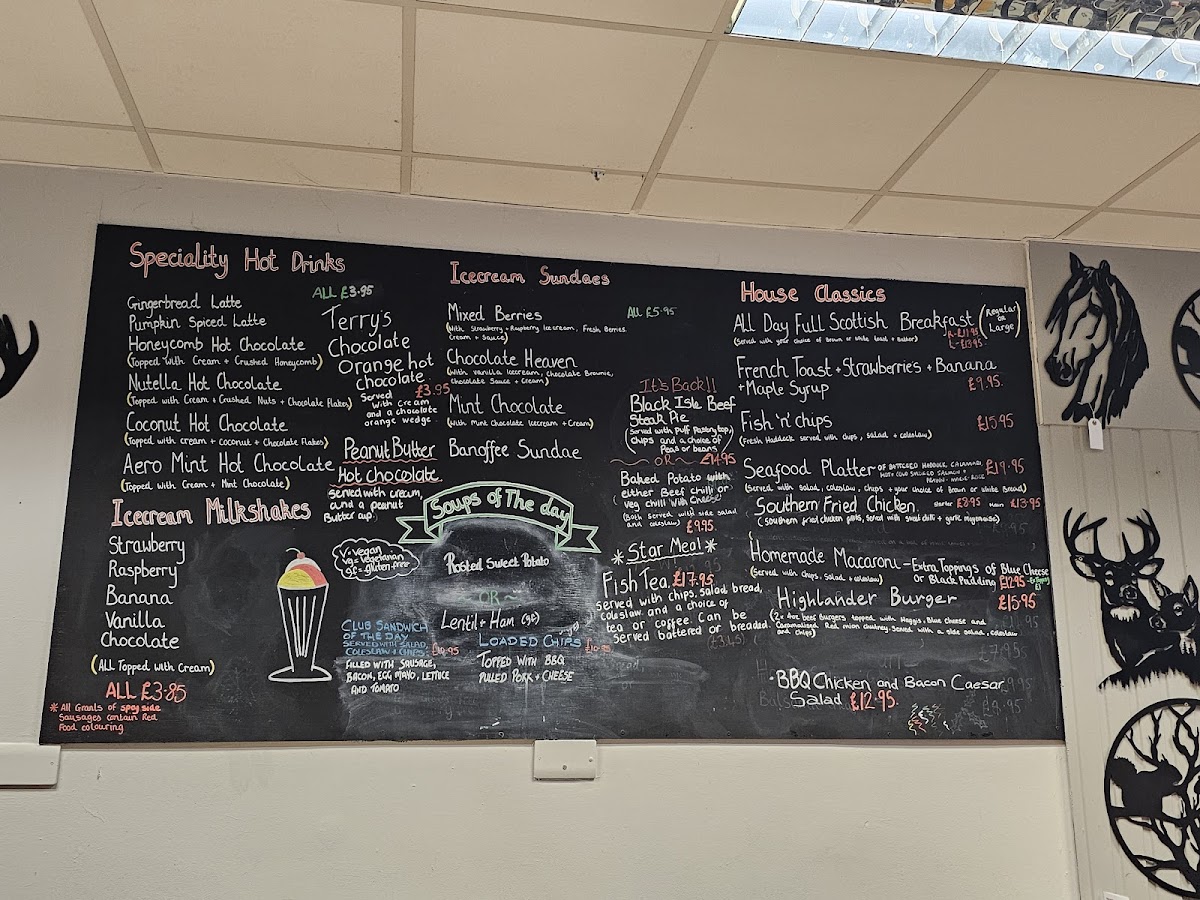 Speciality Hot Drinks
ALL £3.95
Gingerbread Latte
Pumpkin Spiced Latte
Honeycomb Hot Chocolate
(Topped with Cream + Crushed Honeycomb)
Nutella Hot Chocolate
(Topped with Cream + Crushed Nuts + Chocolate Flakes)
Coconut Hot Chocolate
(Topped with cream + coconut + Chocolate Flakes)
Aero Mint Hot Chocolate
(Topped with Cream + Mint Chocolate)
Terry's
Chocolate
Orange hot
chocolate
Served £3.95
with cream
and a chocolate
orange wedge
Peanut Butter
Hot chocolate
served with cream,
and a peanut
Butter cup.
Icecream Milkshakes
Strawberry
Raspberry
Banana
Vanilla
Chocolate
(All Topped with Cream)
ALL £3.85
* All Grants of spey side
Sausages contain Red
Food colouring
Icecream Sundaes
ALL £5.95
Mixed Berries
(With Strawberry + Raspberry Icecream, Fresh Berries
Cream + Sauce)
Chocolate Heaven
(With vanilla Icecream, Chocolate Brownie,
Chocolate Sauce + Cream)
Mint Chocolate
(With Mint Chocolate Icecream + Cream)
Banoffee Sundae
Soups of The day
V=Vegan
Vg=Vegetarian
gf=gluten free
Rosted Sweet Potato
OR
Lentil + Ham (gf)
CLUB SANDWICH
OF THE DAY
SERVED WITH SALAD,
COLESLAW + CHIPS £10.95
FILLED WITH SAUSAGE,
BACON, EGG, MAYO, LETTUCE
AND TOMATO
LOADED CHIPS £10.95
TOPPED WITH BBQ
PULLED PORK + CHEESE
It's Back!!
Black Isle Beef
Steak Pie
(Served with Puff Pastry top,
chips and a choice of
Peas or beans)
OR £14.95
Baked Potato with
either Beef chilli or
veg chilli with Cheese
(Both Served with side salad
and coleslaw) £9.95
* Star Meal *
Fish Tea £17.95
served with chips, salad bread,
coleslaw and a choice of
tea or coffee Can be
Served battered or breaded.
House Classics
All Day Full Scottish Breakfast (Regular
or
Large)
(Served with your choice of brown or white toast + butter)
R-£11.95
L-£13.95
French Toast + Strawberries + Banana
+ Maple Syrup £9.95
Fish 'n' chips £15.95
(Fresh Haddock served with chips, salad + coleslaw)
Seafood Platter OF BATTERED HADDOCK, CALAMARI, £19.95
HOT + COLD SMOKED SALMON +
PRAWN MARIE-ROSE
(Served with, salad, coleslaw, chips + your choice of Brown or white Bread)
Southern Fried Chicken Starter £8.95 Main £13.95
(Southern fried chicken fillets, served with sweet chilli + garlic mayonnaise)
Homemade Macaroni - Extra Toppings of Blue Cheese
(Served with chips, salad + coleslaw) or Black Pudding £12.95
Highlander Burger £15.95
(2x 4oz beef Burgers topped with Haggis, Blue Cheese and
Caramalised Red onion chutney. Served with a side salad, coleslaw
and chips)
- BBQ Chicken and Bacon Caesar
Salad £12.95